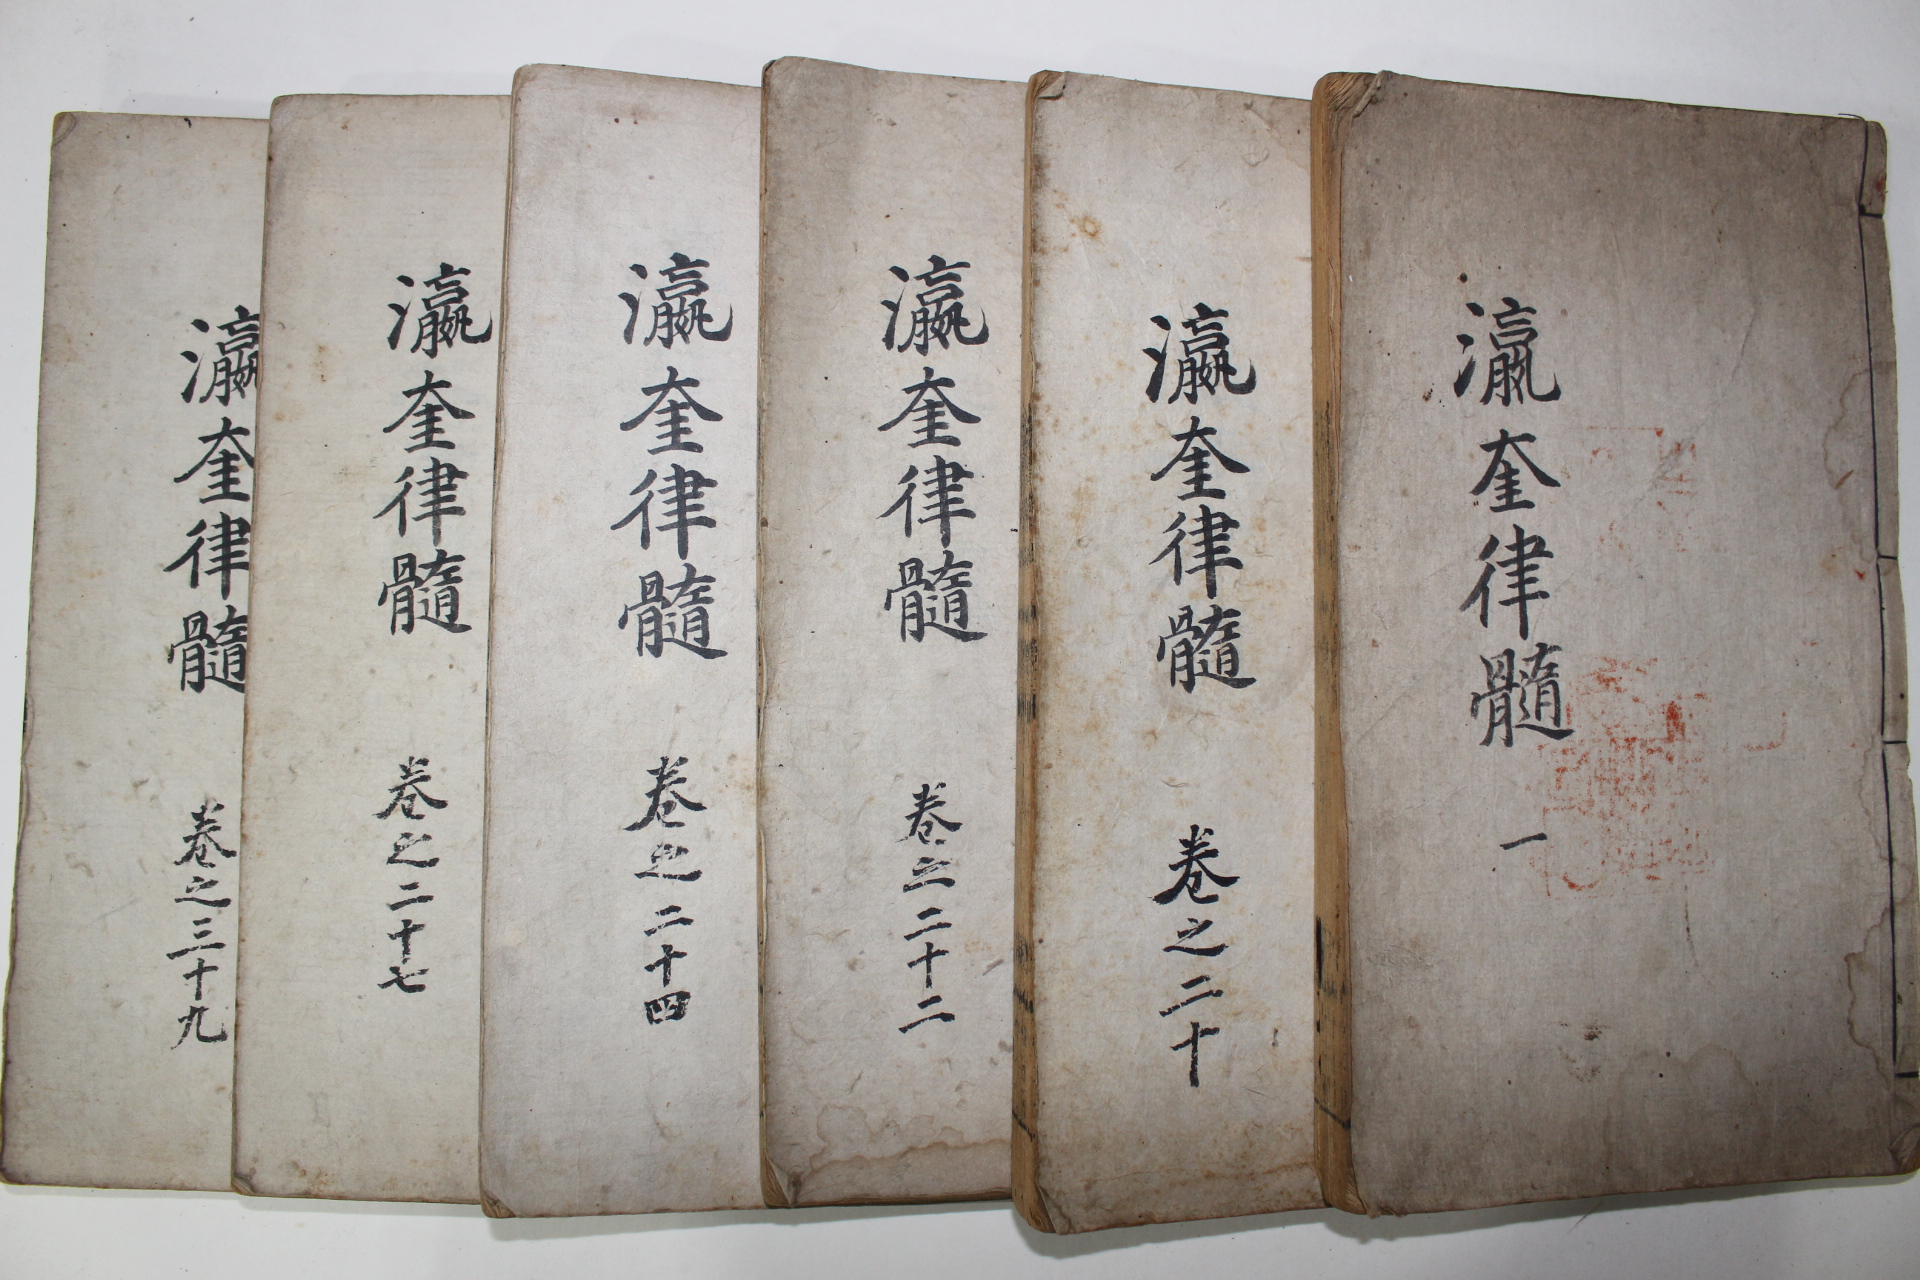 瀛奎律髓 一
瀛奎律髓 卷之二十
瀛奎律髓 卷之二十二
瀛奎律髓 卷之二十四
瀛奎律髓 卷之二十七
瀛奎律髓 卷之三十九